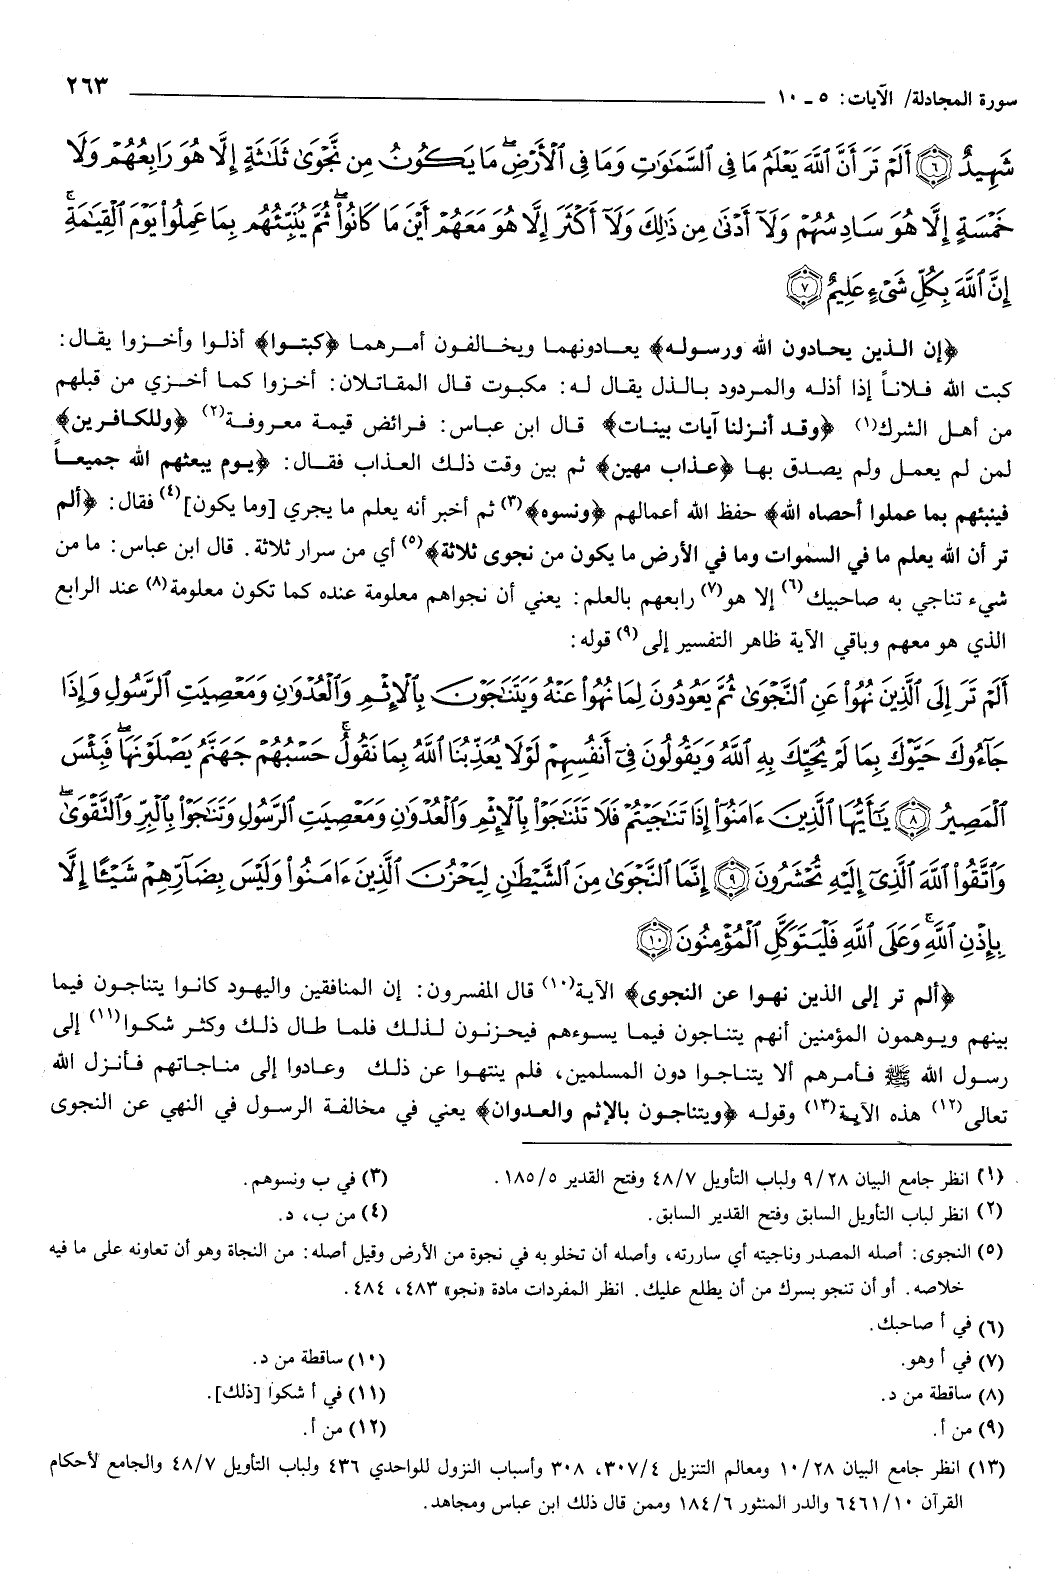 سورة المجادلة/ الآيات: ٥ - ١٠ ٢٦٣
شَهِيدٌ ﴿٦﴾ أَلَمْ تَرَ أَنَّ ٱللَّهَ يَعْلَمُ مَا فِى ٱلسَّمَٰوَٰتِ وَمَا فِى ٱلْأَرْضِ ۖ مَا يَكُونُ مِن نَّجْوَىٰ ثَلَٰثَةٍ إِلَّا هُوَ رَابِعُهُمْ وَلَا
خَمْسَةٍ إِلَّا هُوَ سَادِسُهُمْ وَلَآ أَدْنَىٰ مِن ذَٰلِكَ وَلَآ أَكْثَرَ إِلَّا هُوَ مَعَهُمْ أَيْنَ مَا كَانُوا۟ ۖ ثُمَّ يُنَبِّئُهُم بِمَا عَمِلُوا۟ يَوْمَ ٱلْقِيَٰمَةِ ۚ
إِنَّ ٱللَّهَ بِكُلِّ شَىْءٍ عَلِيمٌ ﴿٧﴾
﴿إن الذين يحادون الله ورسوله﴾ يعادونهما ويخالفون أمرهما ﴿كبتوا﴾ أذلوا وأخزوا يقال:
كبت الله فلاناً إذا أذله والمردود بالذل يقال له: مكبوت قال المقاتلان: أخزوا كما أخزي من قبلهم
من أهل الشرك(١) ﴿وقد أنزلنا آيات بينات﴾ قال ابن عباس: فرائض قيمة معروفة(٢) ﴿وللكافرين﴾
لمن لم يعمل ولم يصدق بها ﴿عذاب مهين﴾ ثم بين وقت ذلك العذاب فقال: ﴿يوم يبعثهم الله جميعاً
فينبئهم بما عملوا أحصاه الله﴾ حفظ الله أعمالهم ﴿ونسوه﴾(٣) ثم أخبر أنه يعلم ما يجري [وما يكون](٤) فقال: ﴿ألم
تر أن الله يعلم ما في السموات وما في الأرض ما يكون من نجوى ثلاثة﴾(٥) أي من سرار ثلاثة. قال ابن عباس: ما من
شيء تناجي به صاحبيك(٦) إلا هو(٧) رابعهم بالعلم: يعني أن نجواهم معلومة عنده كما تكون معلومة(٨) عند الرابع
الذي هو معهم وباقي الآية ظاهر التفسير إلى(٩) قوله:
أَلَمْ تَرَ إِلَى ٱلَّذِينَ نُهُوا۟ عَنِ ٱلنَّجْوَىٰ ثُمَّ يَعُودُونَ لِمَا نُهُوا۟ عَنْهُ وَيَتَنَٰجَوْنَ بِٱلْإِثْمِ وَٱلْعُدْوَٰنِ وَمَعْصِيَتِ ٱلرَّسُولِ وَإِذَا
جَآءُوكَ حَيَّوْكَ بِمَا لَمْ يُحَيِّكَ بِهِ ٱللَّهُ وَيَقُولُونَ فِىٓ أَنفُسِهِمْ لَوْلَا يُعَذِّبُنَا ٱللَّهُ بِمَا نَقُولُ ۚ حَسْبُهُمْ جَهَنَّمُ يَصْلَوْنَهَا ۖ فَبِئْسَ
ٱلْمَصِيرُ ﴿٨﴾ يَٰٓأَيُّهَا ٱلَّذِينَ ءَامَنُوٓا۟ إِذَا تَنَٰجَيْتُمْ فَلَا تَتَنَٰجَوْا۟ بِٱلْإِثْمِ وَٱلْعُدْوَٰنِ وَمَعْصِيَتِ ٱلرَّسُولِ وَتَنَٰجَوْا۟ بِٱلْبِرِّ وَٱلتَّقْوَىٰ ۖ
وَٱتَّقُوا۟ ٱللَّهَ ٱلَّذِىٓ إِلَيْهِ تُحْشَرُونَ ﴿٩﴾ إِنَّمَا ٱلنَّجْوَىٰ مِنَ ٱلشَّيْطَٰنِ لِيَحْزُنَ ٱلَّذِينَ ءَامَنُوا۟ وَلَيْسَ بِضَآرِّهِمْ شَيْـًٔا إِلَّا
بِإِذْنِ ٱللَّهِ ۚ وَعَلَى ٱللَّهِ فَلْيَتَوَكَّلِ ٱلْمُؤْمِنُونَ ﴿١٠﴾
﴿ألم تر إلى الذين نهوا عن النجوى﴾ الآية(١٠) قال المفسرون: إن المنافقين واليهود كانوا يتناجون فيما
بينهم ويوهمون المؤمنين أنهم يتناجون فيما يسوءهم فيحزنون لذلك فلما طال ذلك وكثر شكوا(١١) إلى
رسول الله ﷺ فأمرهم ألا يتناجوا دون المسلمين، فلم ينتهوا عن ذلك وعادوا إلى مناجاتهم فأنزل الله
تعالى(١٢) هذه الآية(١٣) وقوله ﴿ويتناجون بالإثم والعدوان﴾ يعني في مخالفة الرسول في النهي عن النجوى
(١) انظر جامع البيان ٩/٢٨ ولباب التأويل ٤٨/٧ وفتح القدير ١٨٥/٥. (٣) في ب ونسوهم.
(٢) انظر لباب التأويل السابق وفتح القدير السابق. (٤) من ب، د.
(٥) النجوى: أصله المصدر وناجيته أي ساررته، وأصله أن تخلو به في نجوة من الأرض وقيل أصله: من النجاة وهو أن تعاونه على ما فيه
خلاصه. أو أن تنجو بسرك من أن يطلع عليك. انظر المفردات مادة «نجو» ٤٨٣، ٤٨٤.
(٦) في أ صاحبك.
(٧) في أ وهو. (١٠) ساقطة من د.
(٨) ساقطة من د. (١١) في أ شكوا [ذلك].
(٩) من أ. (١٢) من أ.
(١٣) انظر جامع البيان ١٠/٢٨ ومعالم التنزيل ٣٠٧/٤، ٣٠٨ وأسباب النزول للواحدي ٤٣٦ ولباب التأويل ٤٨/٧ والجامع لأحكام
القرآن ٦٤٦١/١٠ والدر المنثور ١٨٤/٦ وممن قال ذلك ابن عباس ومجاهد.